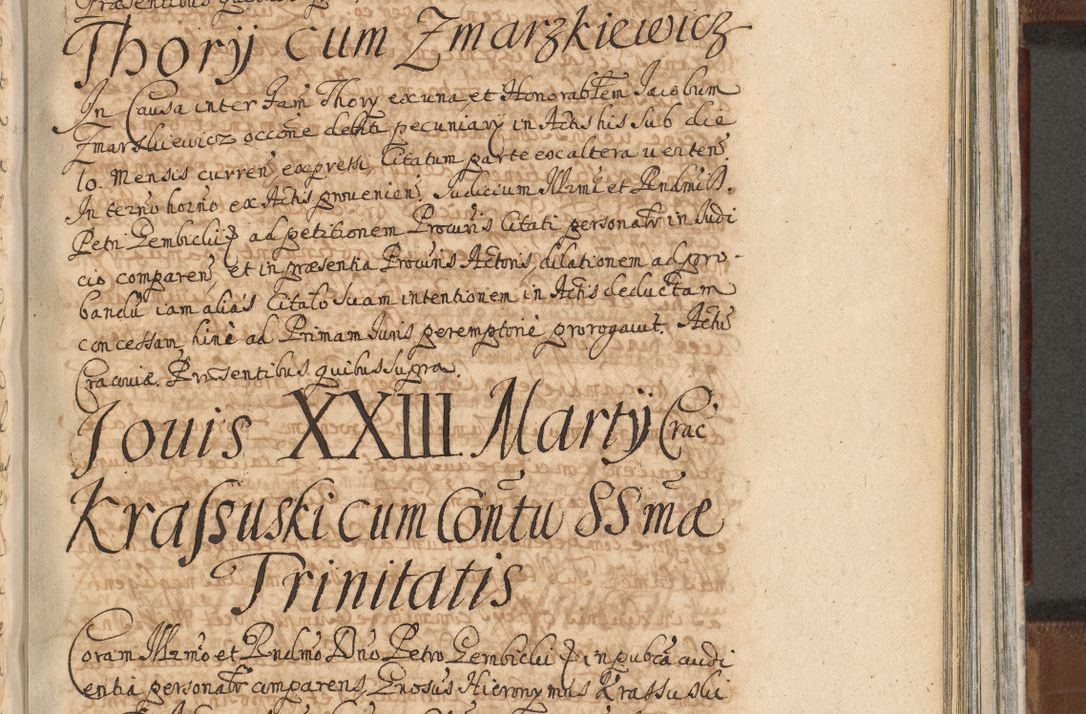 Præsentibus quibus supra.
Thorÿ cum Zmarzkiewicz
In Causa inter Fam Thorÿ ex una et Honorablem Jacobum
Zmarzkiewicz occone debiti pecuniarÿ in Actis his sub die
10. Mensis curren expressi, Citatum parte ex altera uerten.
In termo horno ex Actis prouenien, Judicium Illmi et Rndmi D.
Petri Gembicki ad petitionem Procuris Citati personalr in Judi
cio comparen, et in præsentia Procuris Actoris, dilationem ad pro-
bandu iam alias Citato suam intentionem in Actis deductam
concessam, hinc ad Primam Juris peremptorie prorogauit. Actu
Cracouiæ. Præsentibus quibus supra.
Jouis XXIII. Martÿ Crac
Krassuski cum Contu SSmæ
Trinitatis
Coram Illrmo et Rndmo Dno Petro Gembicki in pubca audi
entia personalr comparens, Grosus Hieronymus Krassuski